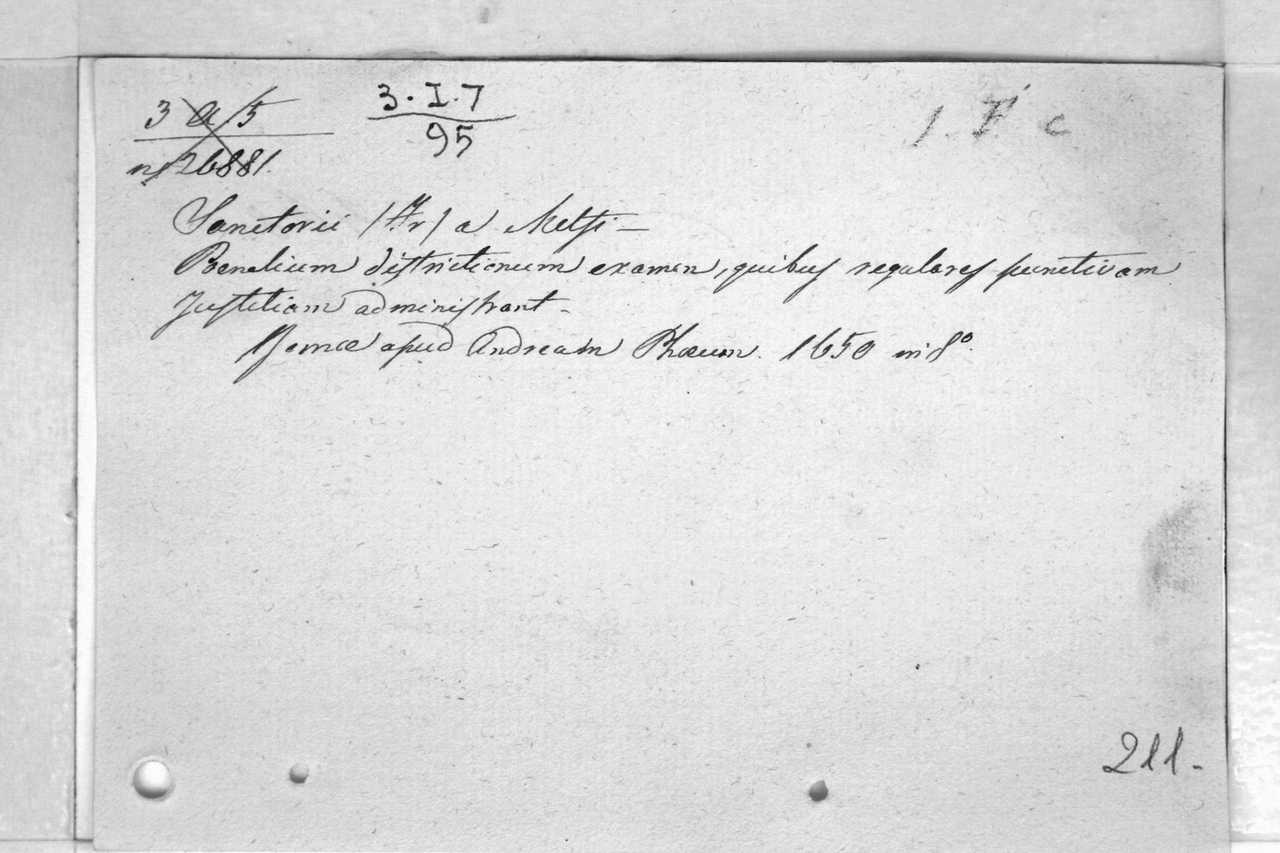 3 a/5 3. I. 7 1. F c
nº 26881. 95
Sanctorii (Fr) a Melfi —
Penalium districtionum examen, quibus regulares punitivam
Justitiam administrant —
Romæ apud Andream Phæum. 1650 in 8º.
211.